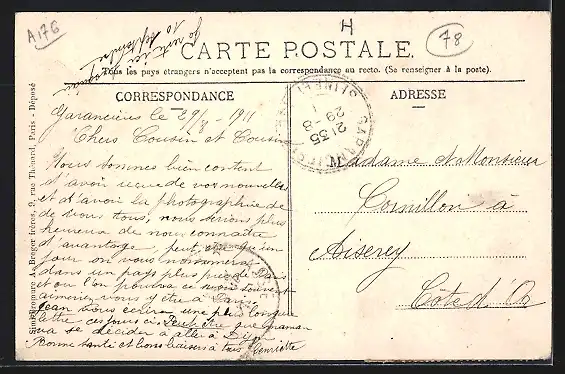 A176
H
78
10 septembre
CARTE POSTALE.
Tous les pays étrangers n'acceptent pas la correspondance au recto. (Se renseigner à la poste).
CORRESPONDANCE
ADRESSE
Simili-Bromure A. Breger frères, 9, rue Thénard, Paris - Déposé
Garancières le 29/8 - 1911
Chers Cousin et Cousine
Nous sommes bien content
d'avoir reçu de vos nouvelles
et d'avoir la photographie de
de vous tous, nous serions plus
heureux de nous connaître
d'avantage, peut être qu'un
jour on vous nommera
dans un pays plus près de Paris
et ou l'on pourra se voir souvent
aimeriez vous y être à Paris
Jean vous écrira une plus longue
lettre ces jours ci. Peut être que maman
va se décider à aller à Dijon
Bonne santé et bons baisers à tous Henriette
21 35
29 - 8
11
GARANCIÈRES
Madame et Monsieur
Cornillon à
Aiserey
Côte d'Or